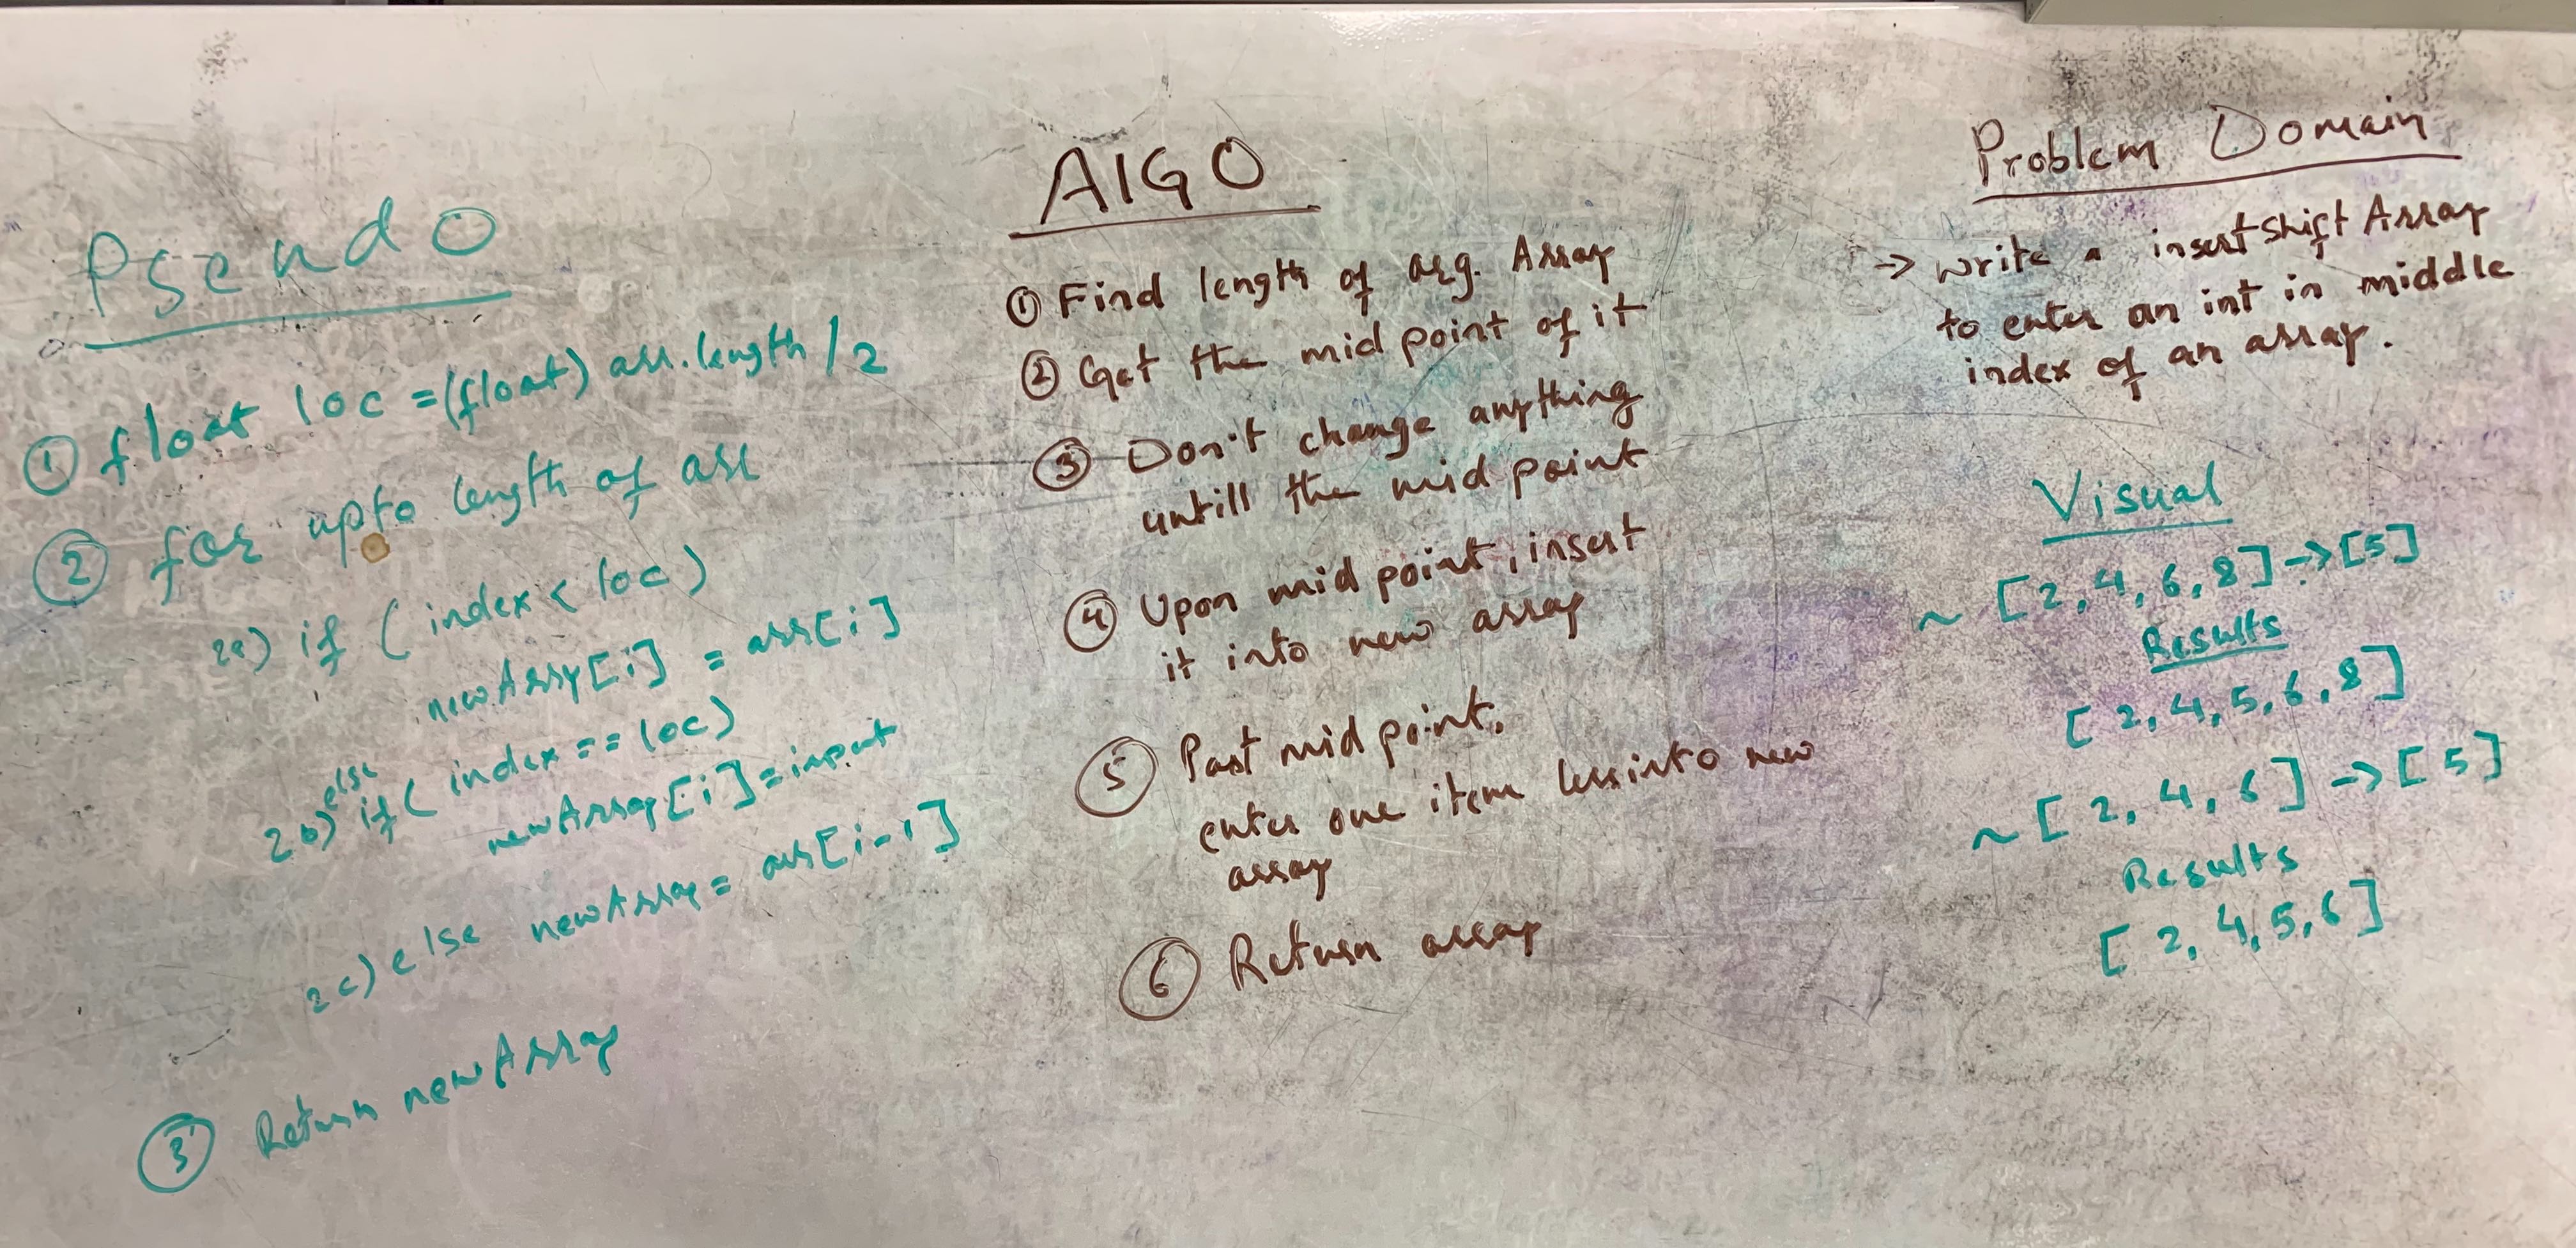 Pseudo
① float loc =(float) arr.length/2
② for upto length of arr
2a) if ( index < loc)
newArry[i] = arr[i]
else
2b) if ( index == loc)
newArray[i] = input
2c) else newArray = arr[i-1]
③ Return newArray
AlGO
① Find length of arg. Array
② Get the mid point of it
③ Don't change anything
untill the mid point
④ Upon mid point, insert
it into new array
⑤ Past mid point,
enter one item less into new
array
⑥ Return array
Problem Domain
→ write a insertshift Array
to enter an int in middle
index of an array.
Visual
~ [2,4,6,8] → [5]
Results
[ 2, 4, 5, 6, 8 ]
~ [ 2, 4, 6 ] → [ 5 ]
Results
[ 2, 4, 5, 6 ]